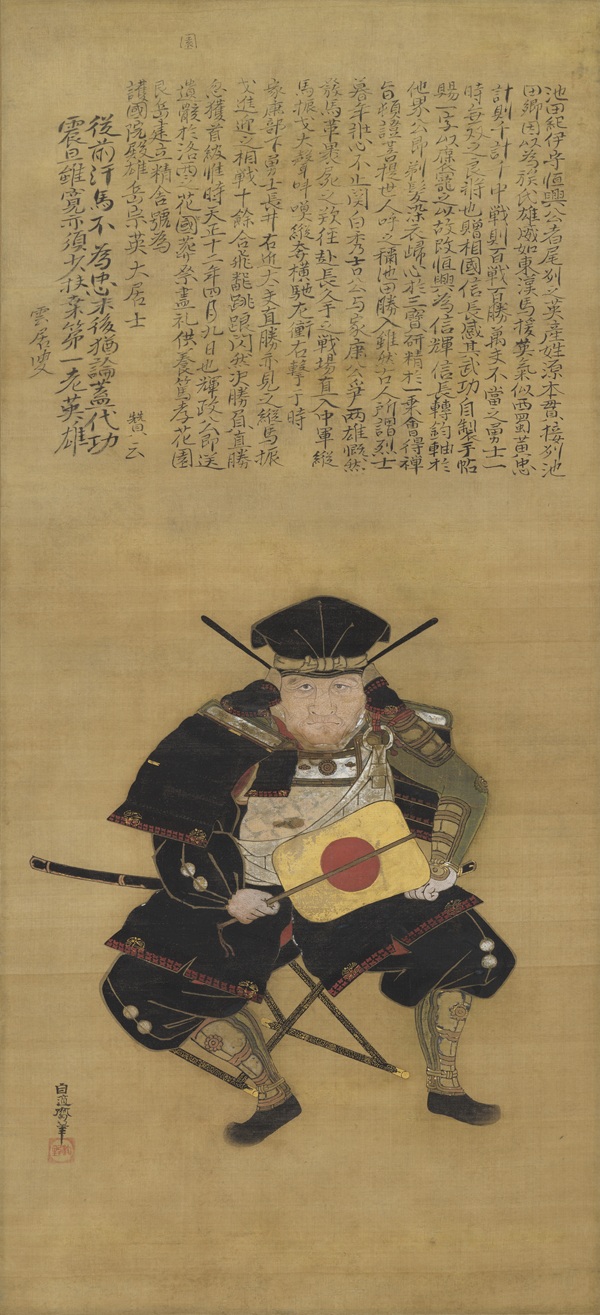 園
池田紀伊守恒興公者尾列之英産姓源本貫接列池
田郷因以為族氏雄威如東漢馬援英氣似西蜀黄忠
計則千計千中戦則百戦百勝萬夫不當之勇士一
時無双之良将也贈相國信長感其武功自製手帖
賜一字以褒寵之以故改恒興為信輝信長轉鈞軸於
他界公即剃髪染衣歸心於三寶研精於一乗會得禅
旨頓證菩提世人呼之稱池田勝入雖然古人所謂烈士
暮年壯心不止関白秀吉公与家康公爭両雄慨然
發馬革裹屍之歎径赴長久手之戦場直入中軍縦
馬振戈大聲叫嘆縦奔横馳左衝右撃于時
家康部下勇士長井右近太夫直勝亦見之縦馬振
戈進迎之相戦十餘合飛翻跳踉閃然决勝負直勝
忽獲首級惟時天正十二年四月九日也輝政公即送
遺骸於洛西之花園葬祭盡礼供養篤孝花園
艮岳建立精舎號為
護國院殿雄岳宗英大居士
賛云
從前汗馬不為忠末後猶論蓋代功
震旦雖寛亦須少扶桑第一老英雄
雲居叟
自適齋筆